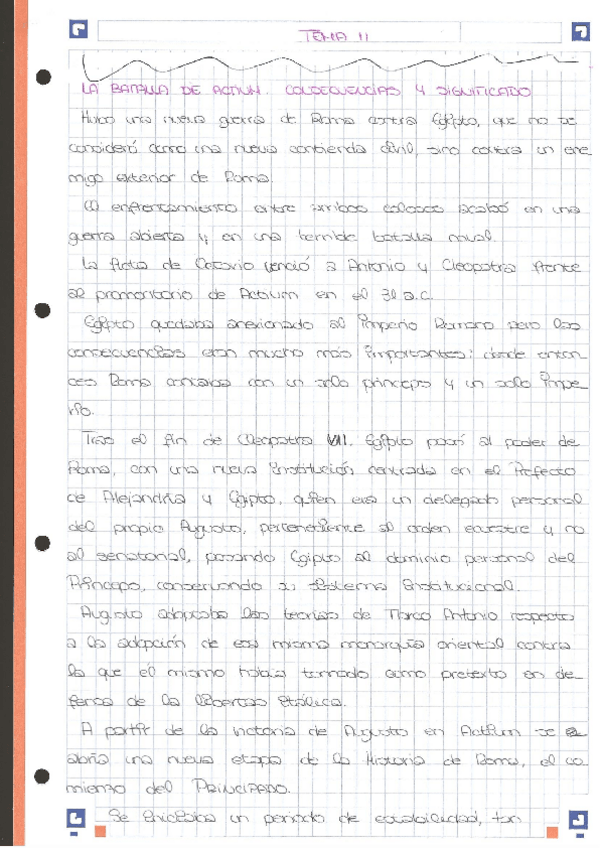 TEMA 11
LA BATALLA DE ACTIUM. CONSECUENCIAS Y SIGNIFICADO
Hubo una nueva guerra de Roma contra Egipto, que no se
consideró como una nueva contienda civil, sino contra un ene
migo exterior de Roma.
El enfrentamiento entre ambos colosos acabó en una
guerra abierta y, en una terrible batalla naval.
La flota de Octavio venció a Antonio y Cleopatra frente
al promontorio de Actium en el 31 a.C.
Egipto quedaba anexionado al Imperio Romano pero las
consecuencias eran mucho más importantes: desde enton
ces Roma contaba con un solo príncipe y un solo Impe
rio.
Tras el fin de Cleopatra VII. Egipto pasó al poder de
Roma, con una nueva institución centrada en el Prefecto
de Alejandría y Egipto, quien era un delegado personal
del propio Augusto, perteneciente al orden ecuestre y no
al senatorial, pasando Egipto al dominio personal del
Príncipe, conservando su sistema institucional.
Augusto adoptaba las teorías de Marco Antonio respecto
a la adopción de esa misma monarquía oriental contra
la que él mismo había tomado como pretexto en de
fensa de la libertas itálica.
A partir de la victoria de Augusto en Actium se
abría una nueva etapa de la Historia de Roma, el co
mienzo del PRINCIPADO.
Se iniciaba un periodo de estabilidad, tan